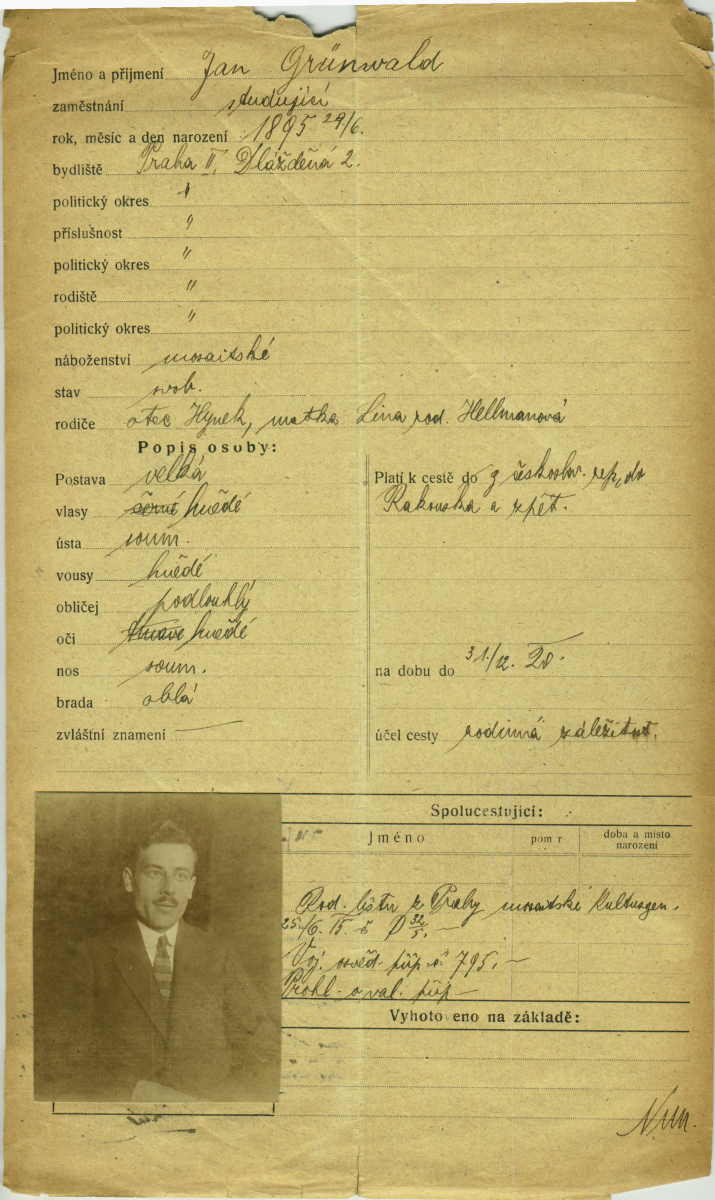 Jméno a příjmení Jan Grünwald
zaměstnání studující
rok, měsíc a den narození 1895 29/6.
bydliště Praha II, Dlážděná 2.
politický okres "
příslušnost "
politický okres "
rodiště "
politický okres "
náboženství mosaitské
stav svob.
rodiče otec Hynek, matka Lina rod. Hellmanová
Popis osoby:
Postava velká
vlasy černé hnědé
ústa soum.
vousy hnědé
obličej podlouhlý
oči tmavé hnědé
nos soum.
brada oblá
zvláštní znamení —
Platí k cestě do z českoslov. rep. do
Rakouska a zpět.
na dobu do 31./12. 20.
účel cesty rodinná záležitost.
Spolucestující:
Jméno
pom r
doba a místo
narození
Rod. listu z Prahy mosaitské Kultusgem.
25./6. 15. č.
Voj. osvěd. přip. č. 795. —
Prohl. o val. půj —
Vyhoto eno na základě: